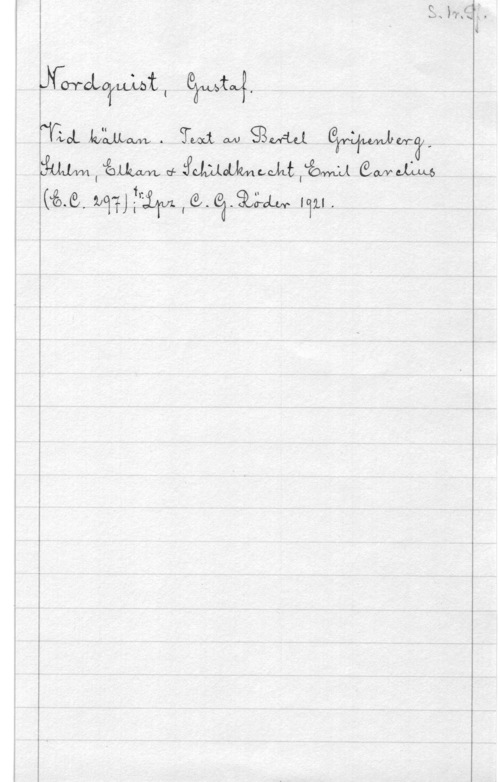 S. tr. Sf.
Nordquist, Gustaf.
Vid källan. Text av Bertel Gripenberg.
Sthlm, Elkan & Schildknecht, Emil Carelius
(E.C. 297); tr. Lpz, C.G. Röder 1921.